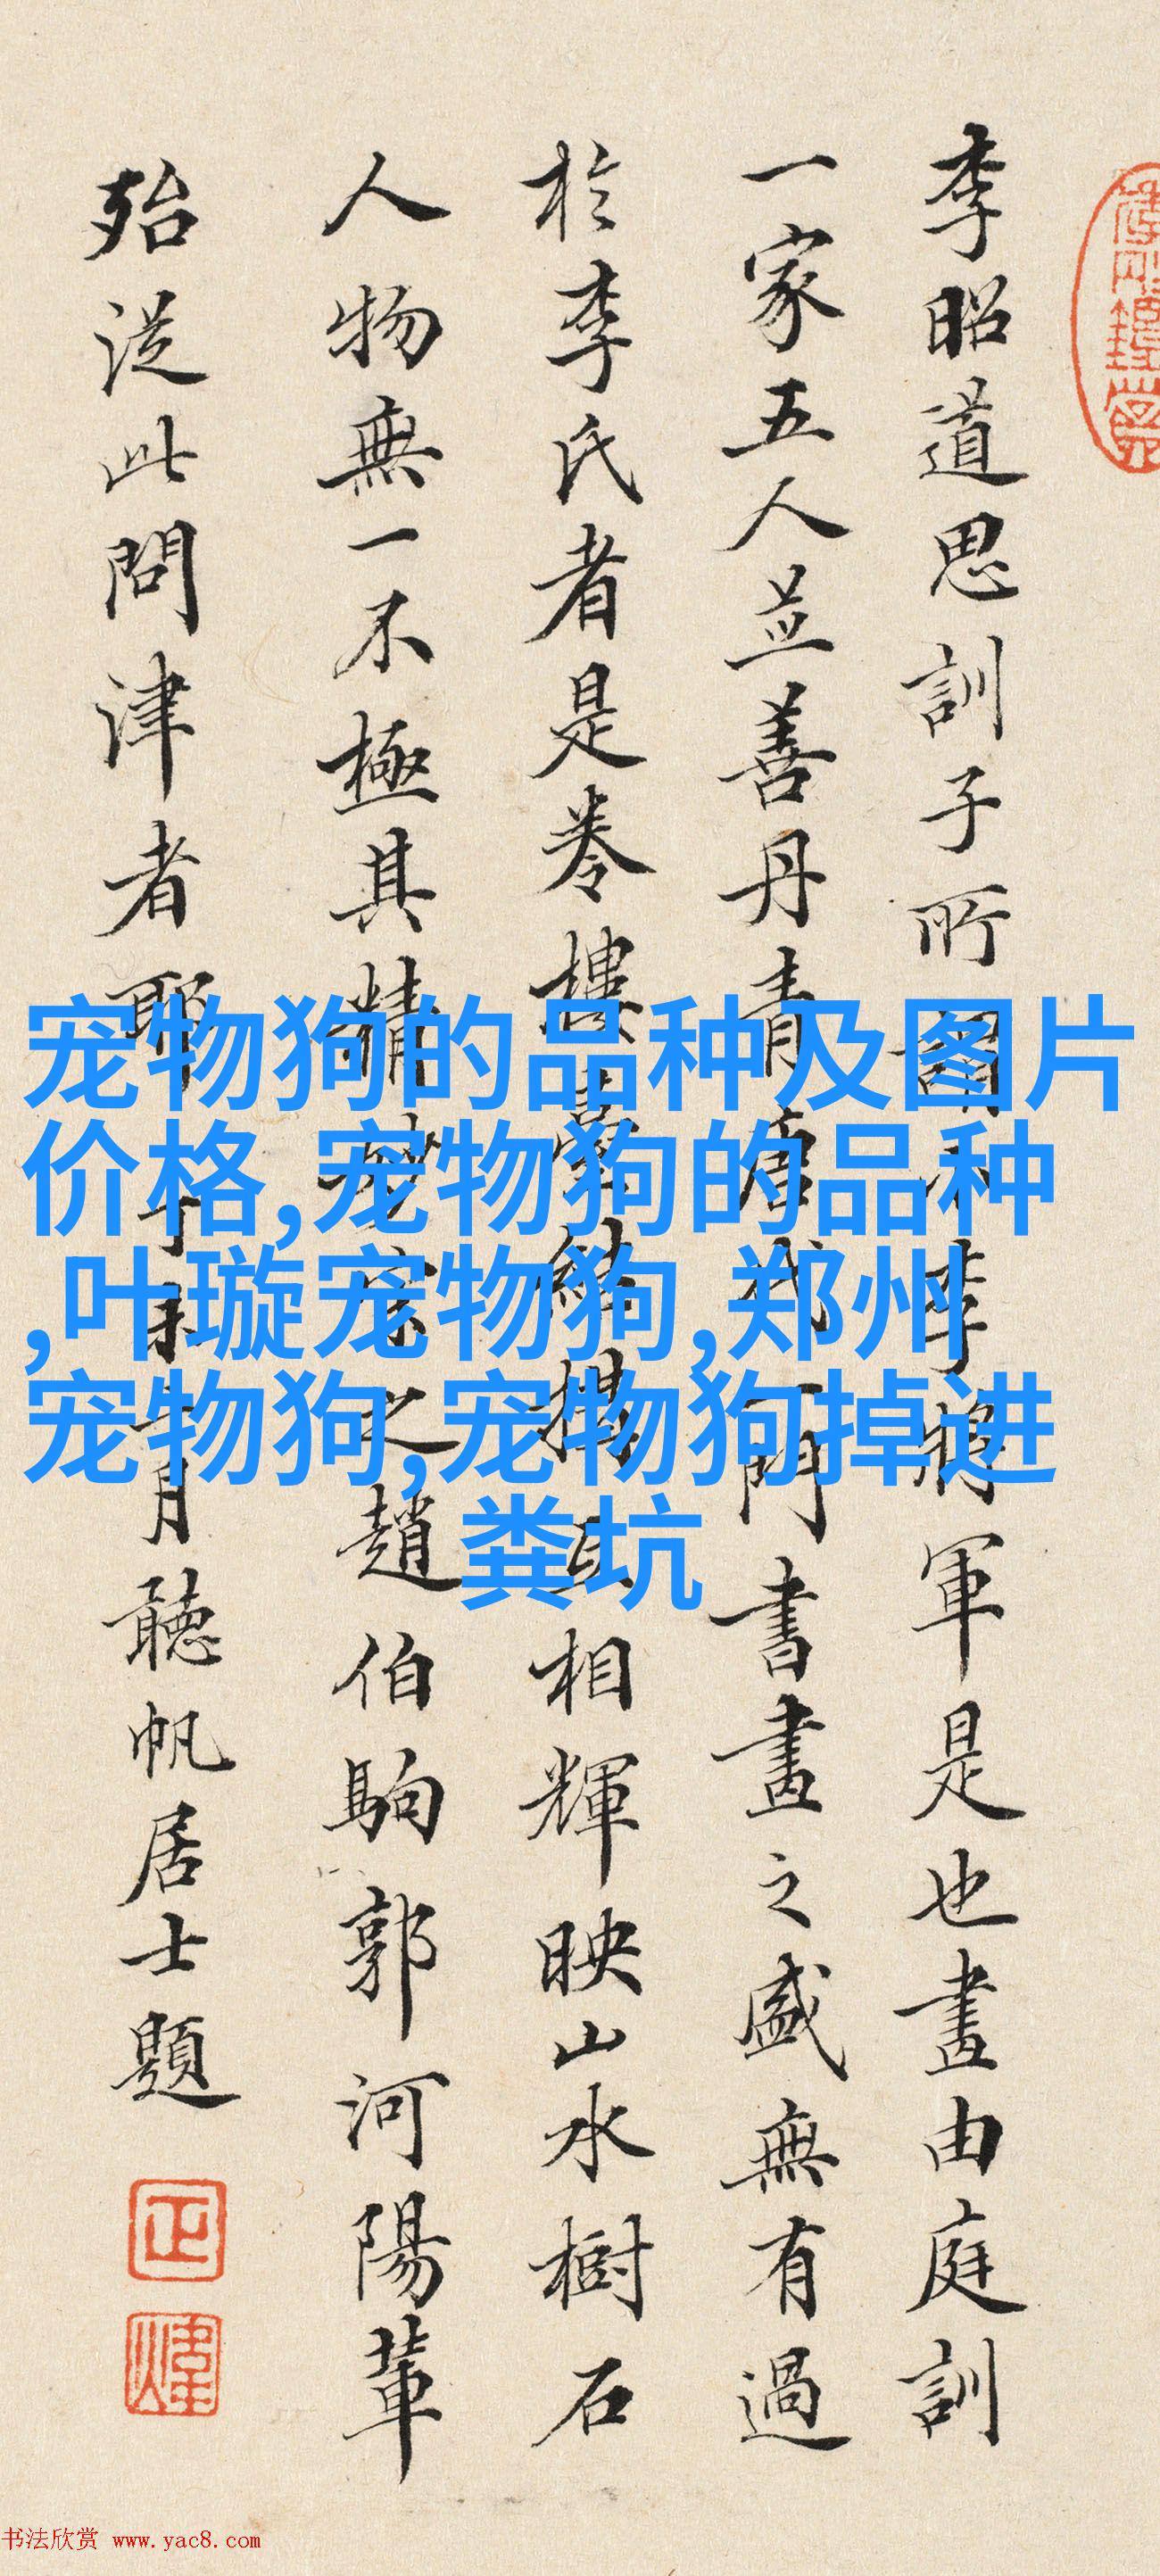 李昭道思訓子所謂小李將軍是也畫由庭訓
一家五人並善丹青唐代一門書畫之盛無有過
於李氏者是卷樓臺結構互相輝映山水樹石
人物無一不極其精妙宋之趙伯駒郭河陽輩
殆從此問津者耶
月聽帆居士題
正
煒
宠物狗的品种及图片
价格,宠物狗的品种
,叶璇宠物狗,郑州
宠物狗,宠物狗掉进
粪坑
书法欣赏 www.yac8.com